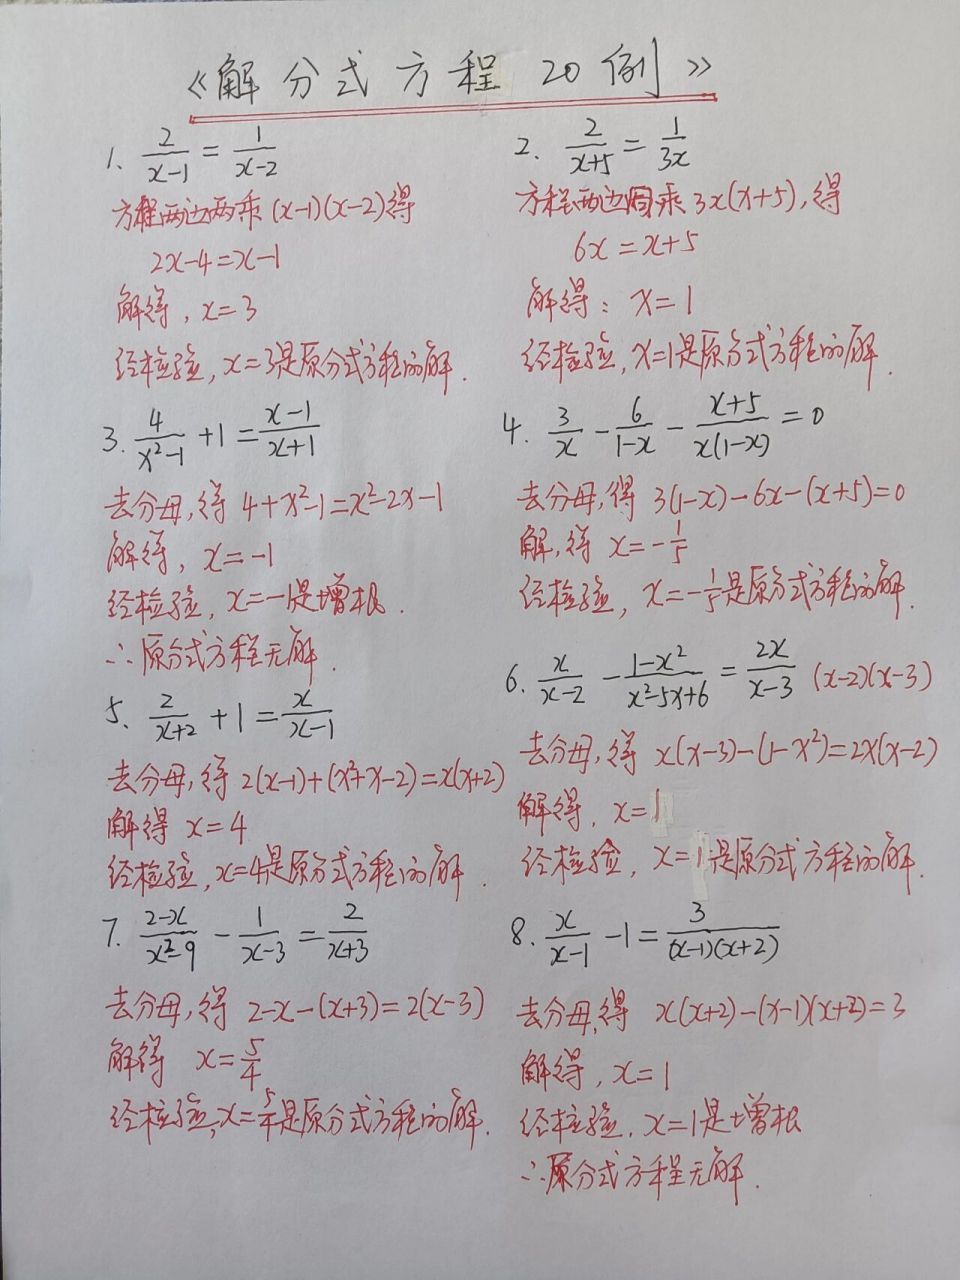 《解分式方程 20例》
1. 2/(x-1) = 1/(x-2)
方程两边两乘(x-1)(x-2)得
2x-4=x-1
解得, x=3
经检验, x=3是原分式方程的解.
2. 2/(x+5) = 1/(3x)
方程两边同乘3x(x+5),得
6x=x+5
解得: x=1
经检验, x=1是原分式方程的解.
3. 4/(x²-1) +1 = (x-1)/(x+1)
去分母,得 4+x²-1=x²-2x-1
解得, x=-1
经检验, x=-1是增根.
∴原分式方程无解.
4. 3/x - 6/(1-x) - (x+5)/(x(1-x)) =0
去分母,得 3(1-x)-6x-(x+5)=0
解,得 x=-1/5
经检验, x=-1/5是原分式方程的解.
5. 2/(x+2) +1 = x/(x-1)
去分母,得 2(x-1)+(x²+x-2)=x(x+2)
解得 x=4
经检验, x=4是原分式方程的解.
6. x/(x-2) - (1-x²)/(x²-5x+6) = 2x/(x-3) (x-2)(x-3)
去分母,得 x(x-3)-(1-x²)=2x(x-2)
解得, x=1
经检验, x=1是原分式方程的解.
7. (2-x)/(x²-9) - 1/(x-3) = 2/(x+3)
去分母,得 2-x-(x+3)=2(x-3)
解得 x=5/4
经检验, x=5/4是原分式方程的解.
8. x/(x-1) -1 = 3/((x-1)(x+2))
去分母,得 x(x+2)-(x-1)(x+2)=3
解得, x=1
经检验, x=1是增根
∴原分式方程无解.